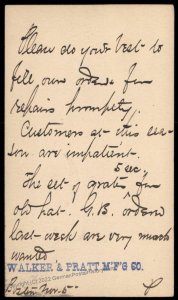 Please do your best to
fill our orders for
repairs promptly.
Customers at this sea-
son are impatient.
5 sec.,
The set of grates for
old hat. G.B. ordered
last week are very much
wanted
WALKER & PRATT M'F'G CO.
Boston Nov. 5